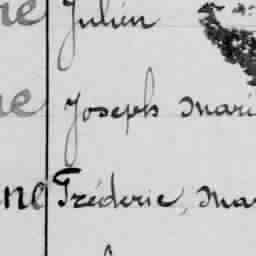 ne Julien
ne Joseph Mari
ne Fréderic, Mar